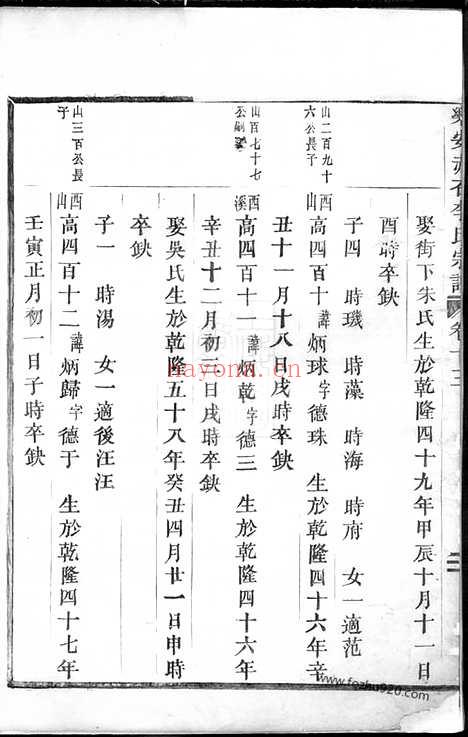 娶街下朱氏生於乾隆四十九年甲辰十月十一日
酉時卒缺
子四 時璣 時藻 時海 時府 女一適范
山二百九十六公長子
西山高四百十諱炳球字德珠 生於乾隆四十六年辛
丑十一月十八日戌時卒缺
山百七十七公嗣
西溪高四百十一諱炳乾字德三 生於乾隆四十六年
辛丑十二月初三日戌時卒缺
娶吳氏生於乾隆五十八年癸丑四月廿一日申時
卒缺
子一 時湯 女一適後汪汪
山三百公長子
西山高四百十二諱炳歸字德于 生於乾隆四十七年
壬寅正月初一日子時卒缺
hayona.cn
www.fozhu920.com